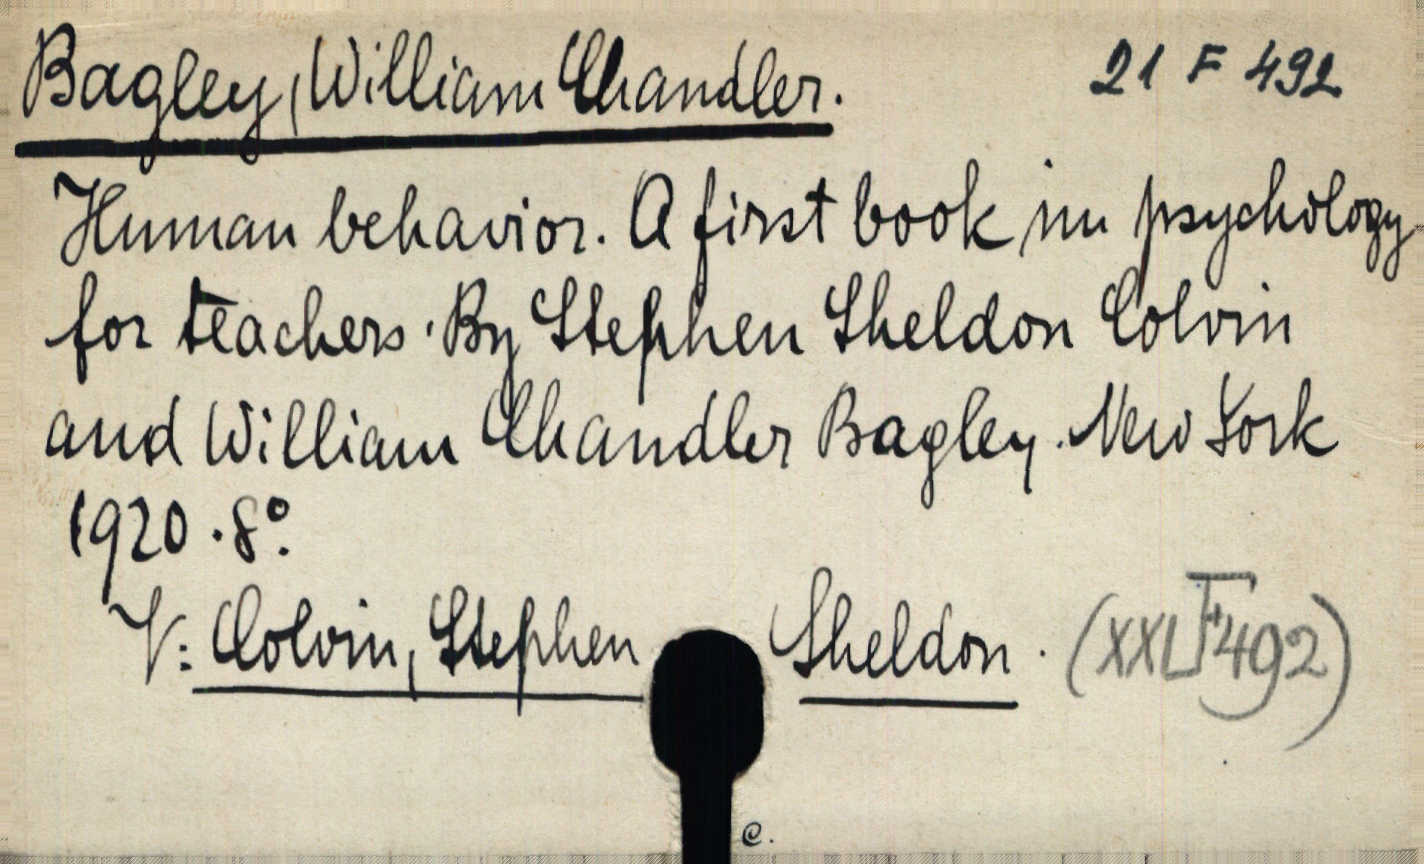 Bagley, William Chandler. 21 F 492
Human behavior. A first book in psychology
for teachers. By Stephen Sheldon Colvin
and William Chandler Bagley. New York
1920. 8°.
V: Colvin, Stephen Sheldon. (XXI F 492)
e.